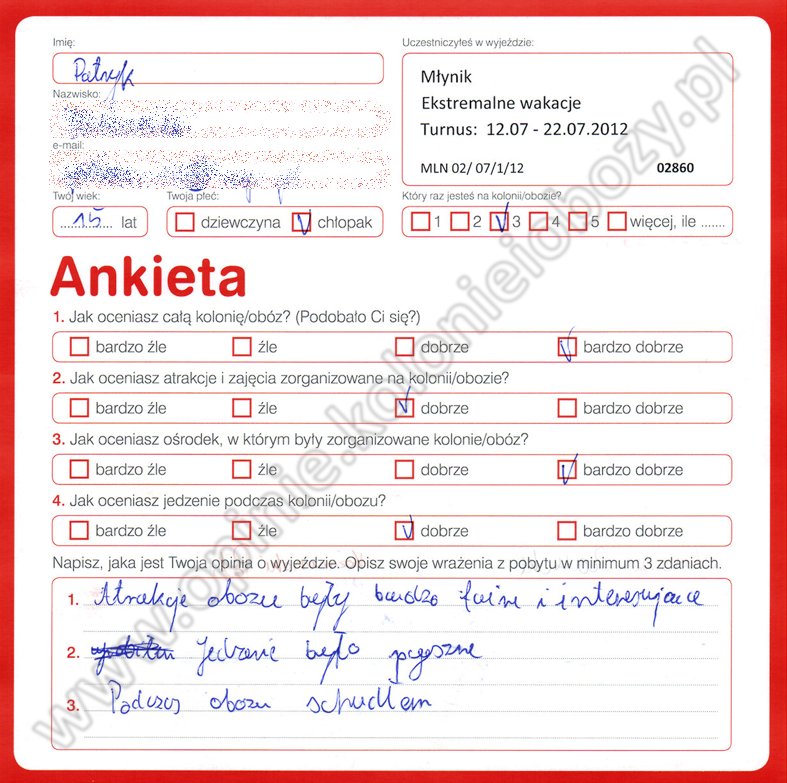 Imię:
Uczestniczyłeś w wyjeździe:
Patryk
Młynik
Ekstremalne wakacje
Turnus: 12.07 - 22.07.2012
MLN 02/ 07/1/12 02860
Nazwisko:
e-mail:
Twój wiek:
Twoja płeć:
Który raz jesteś na kolonii/obozie?
15 lat
dziewczyna chłopak
1 2 3 4 5 więcej, ile .......
Ankieta
1. Jak oceniasz całą kolonię/obóz? (Podobało Ci się?)
bardzo źle źle dobrze bardzo dobrze
2. Jak oceniasz atrakcje i zajęcia zorganizowane na kolonii/obozie?
bardzo źle źle dobrze bardzo dobrze
3. Jak oceniasz ośrodek, w którym były zorganizowane kolonie/obóz?
bardzo źle źle dobrze bardzo dobrze
4. Jak oceniasz jedzenie podczas kolonii/obozu?
bardzo źle źle dobrze bardzo dobrze
Napisz, jaka jest Twoja opinia o wyjeździe. Opisz swoje wrażenia z pobytu w minimum 3 zdaniach.
1. Atrakcje obozu były bardzo fajne i interesujące
2. Jedzenie było pyszne
3. Podczas obozu schudłem
www.opinie.kolonieiobozy.pl